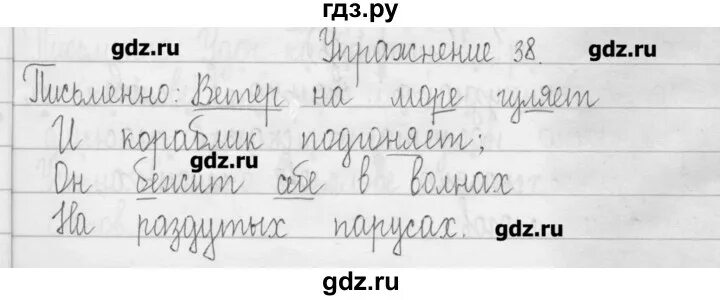 гдз.ру
gdz.ru Упражнение 38. gdz.ru
Письменно: Ветер на море гуляет
И кораблик подгоняет;
gdz.ru
Он бежит себе в волнах
На раздутых парусах. gdz.ru
gdz.ru